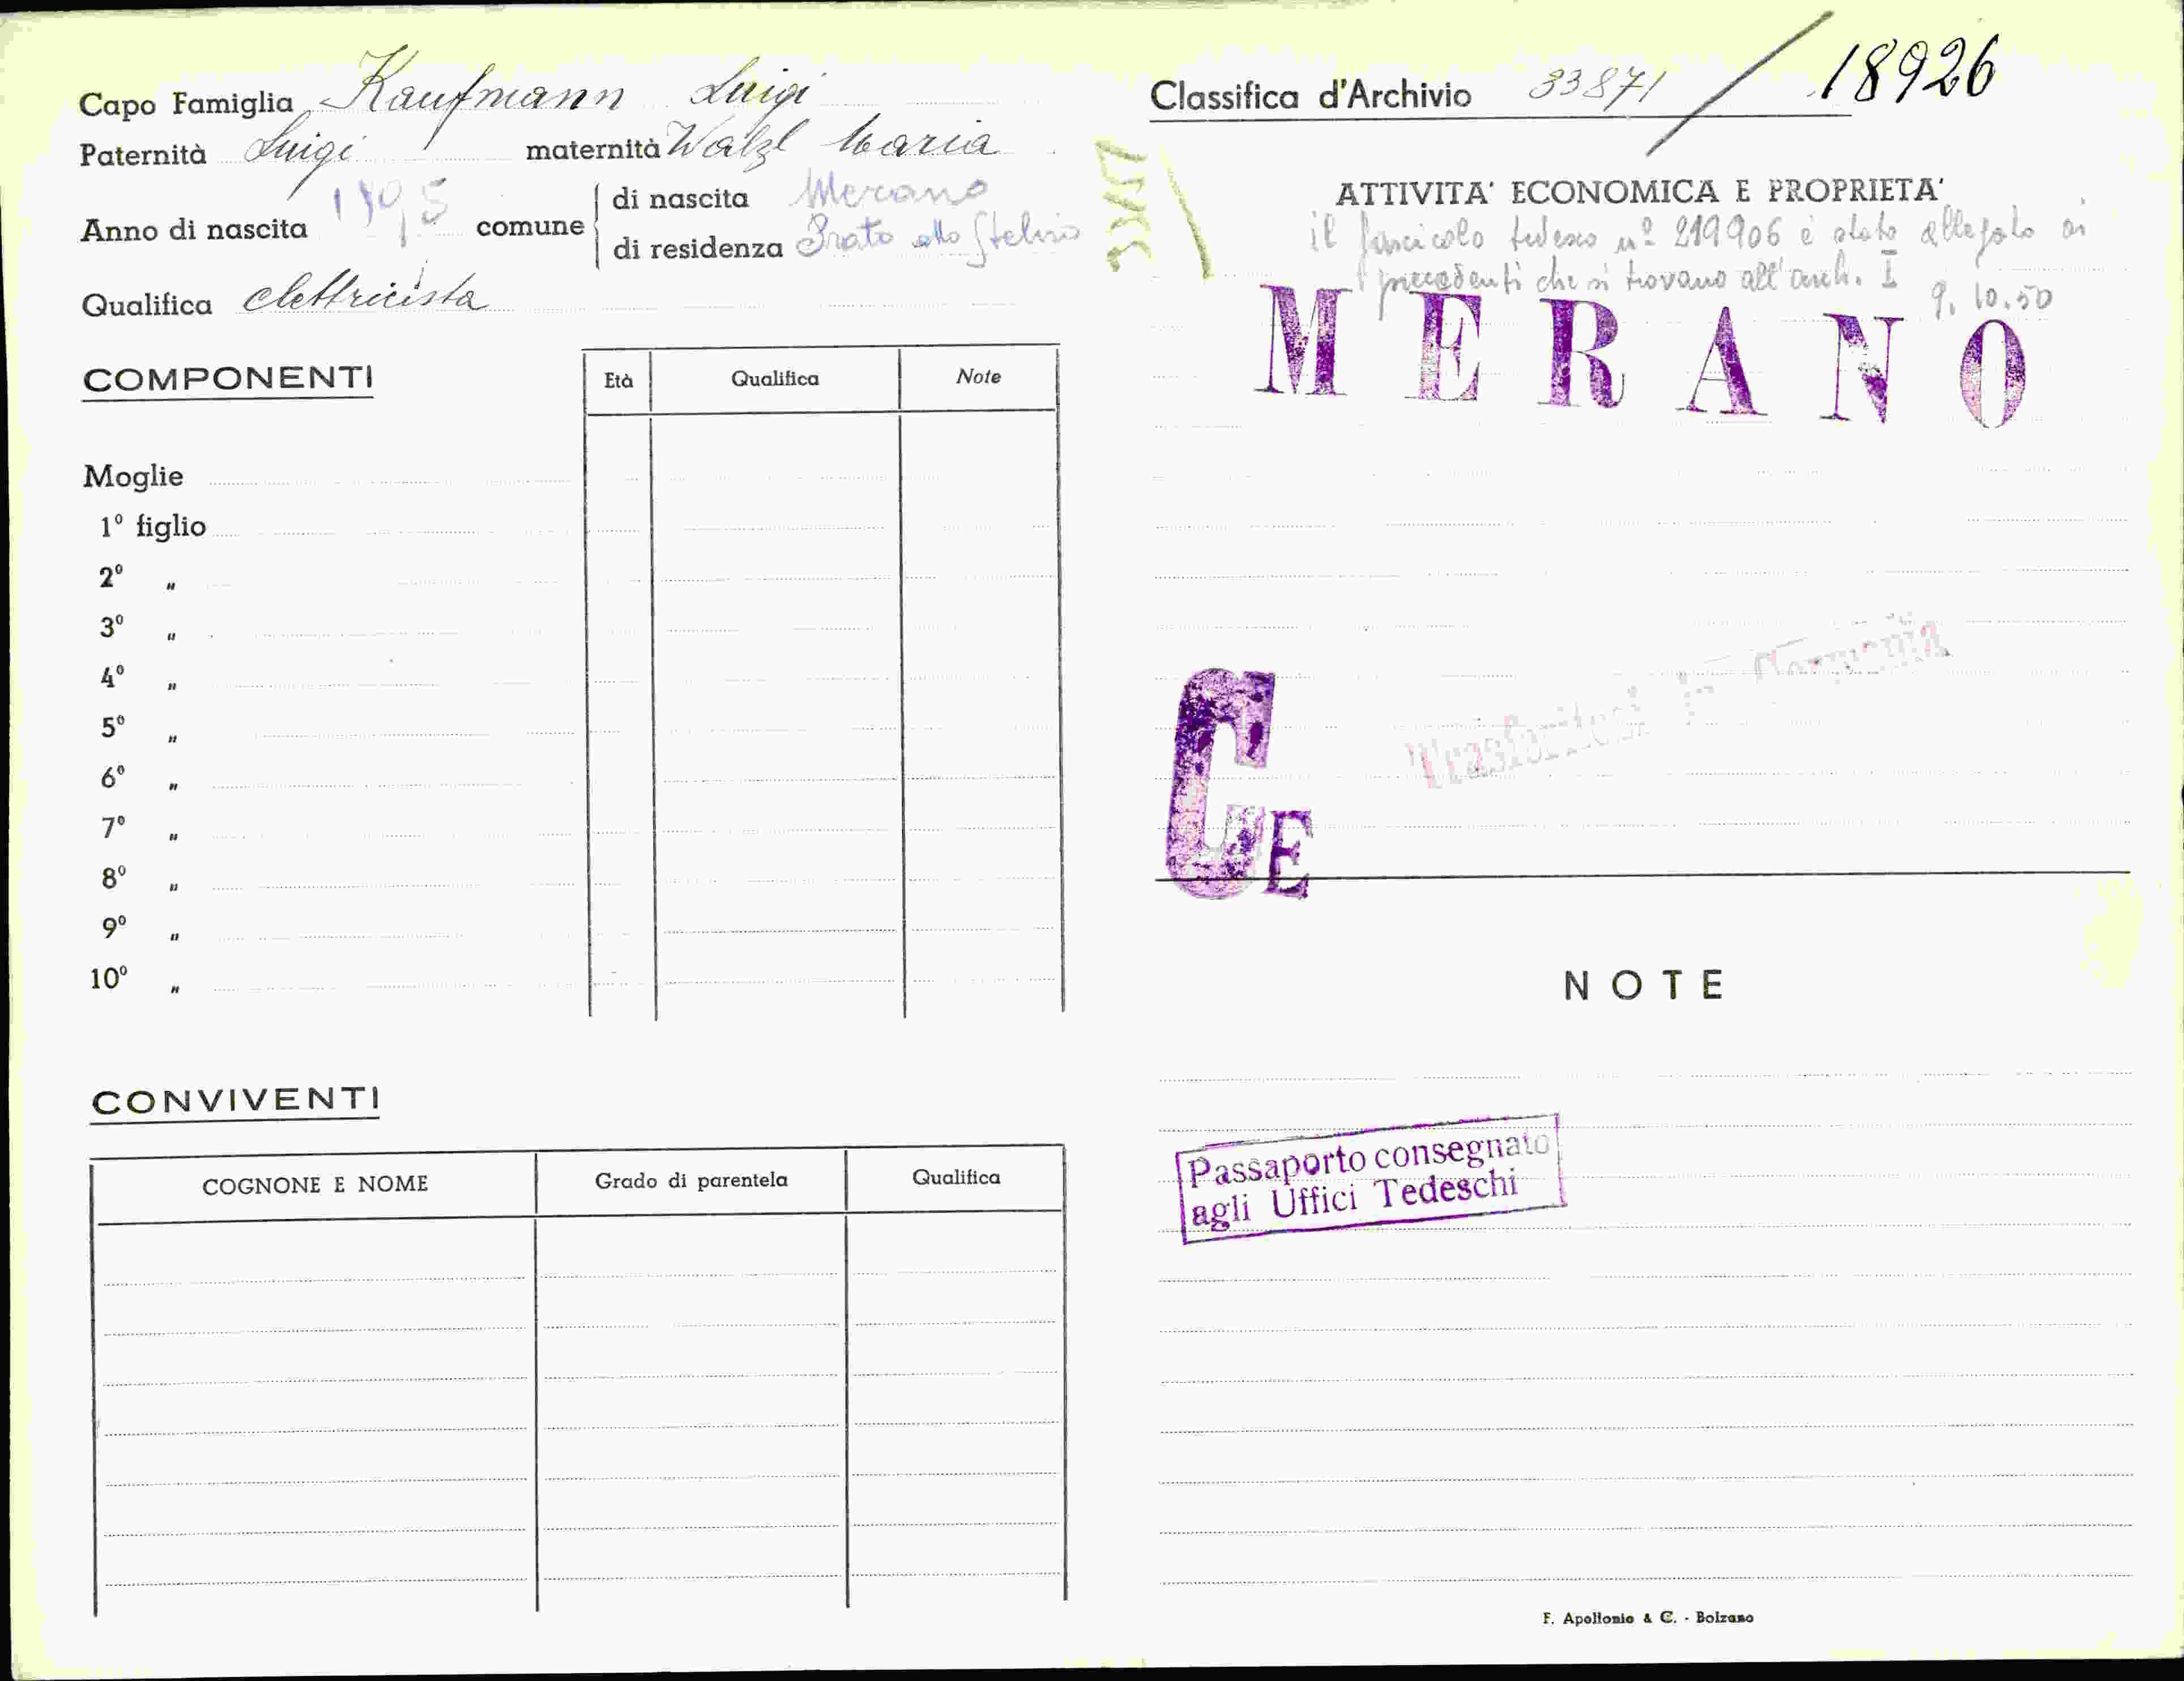 Capo Famiglia Kaufmann Luigi
Paternità Luigi maternità Walzl Maria
Anno di nascita 1895 comune di nascita Merano
di residenza Prato allo Stelvio
Qualifica elettricista
COMPONENTI
Età Qualifica Note
Moglie
1º figlio
2º "
3º "
4º "
5º "
6º "
7º "
8º "
9º "
10º "
CONVIVENTI
COGNONE E NOME Grado di parentela Qualifica
Classifica d'Archivio 33871 / 18926
ATTIVITA' ECONOMICA E PROPRIETA'
il fascicolo tedesco nº 219906 è stato allegato ai
precedenti che si trovano all'arch. I 9.10.50
MERANO
Trasferitosi in Germania
CE
NOTE
Passaporto consegnato
agli Uffici Tedeschi
F. Apollonio & C. - Bolzano